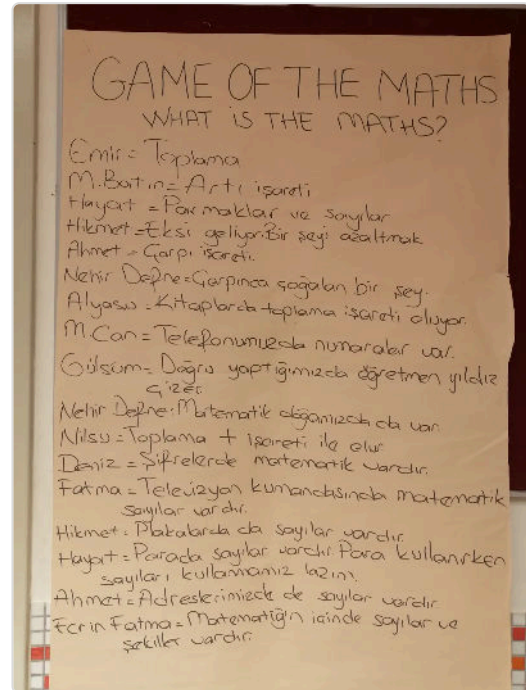 GAME OF THE MATHS
WHAT iS THE MATHS?
Emir = Toplama
M.Batın = Artı işareti
Hayat = Parmaklar ve sayılar
Hikmet = Eksi geliyor. Bir şeyi azaltmak
Ahmet = Çarpı işareti.
Nehir Defne = Çarpınca çoğalan bir şey.
Alyasu = Kitaplarda toplama işareti oluyor.
M.Can = Telefonumuzda numaralar var.
Gülsüm = Doğru yaptığımızda öğretmen yıldız
çizer
Nehir Defne: Matematik doğamızda da var
Nilsu = Toplama + işareti ile olur
Deniz = Şifrelerde matematik vardır.
Fatma = Televizyon kumandasında matematik
sayılar vardır.
Hikmet = Plakalarda da sayılar vardır.
Hayat = Parada sayılar vardır. Para kullanırken
sayıları kullanmamız lazım.
Ahmet = Adreslerimizde de sayılar vardır
Ecrin Fatma = Matematiğin içinde sayılar ve
şekiller vardır.